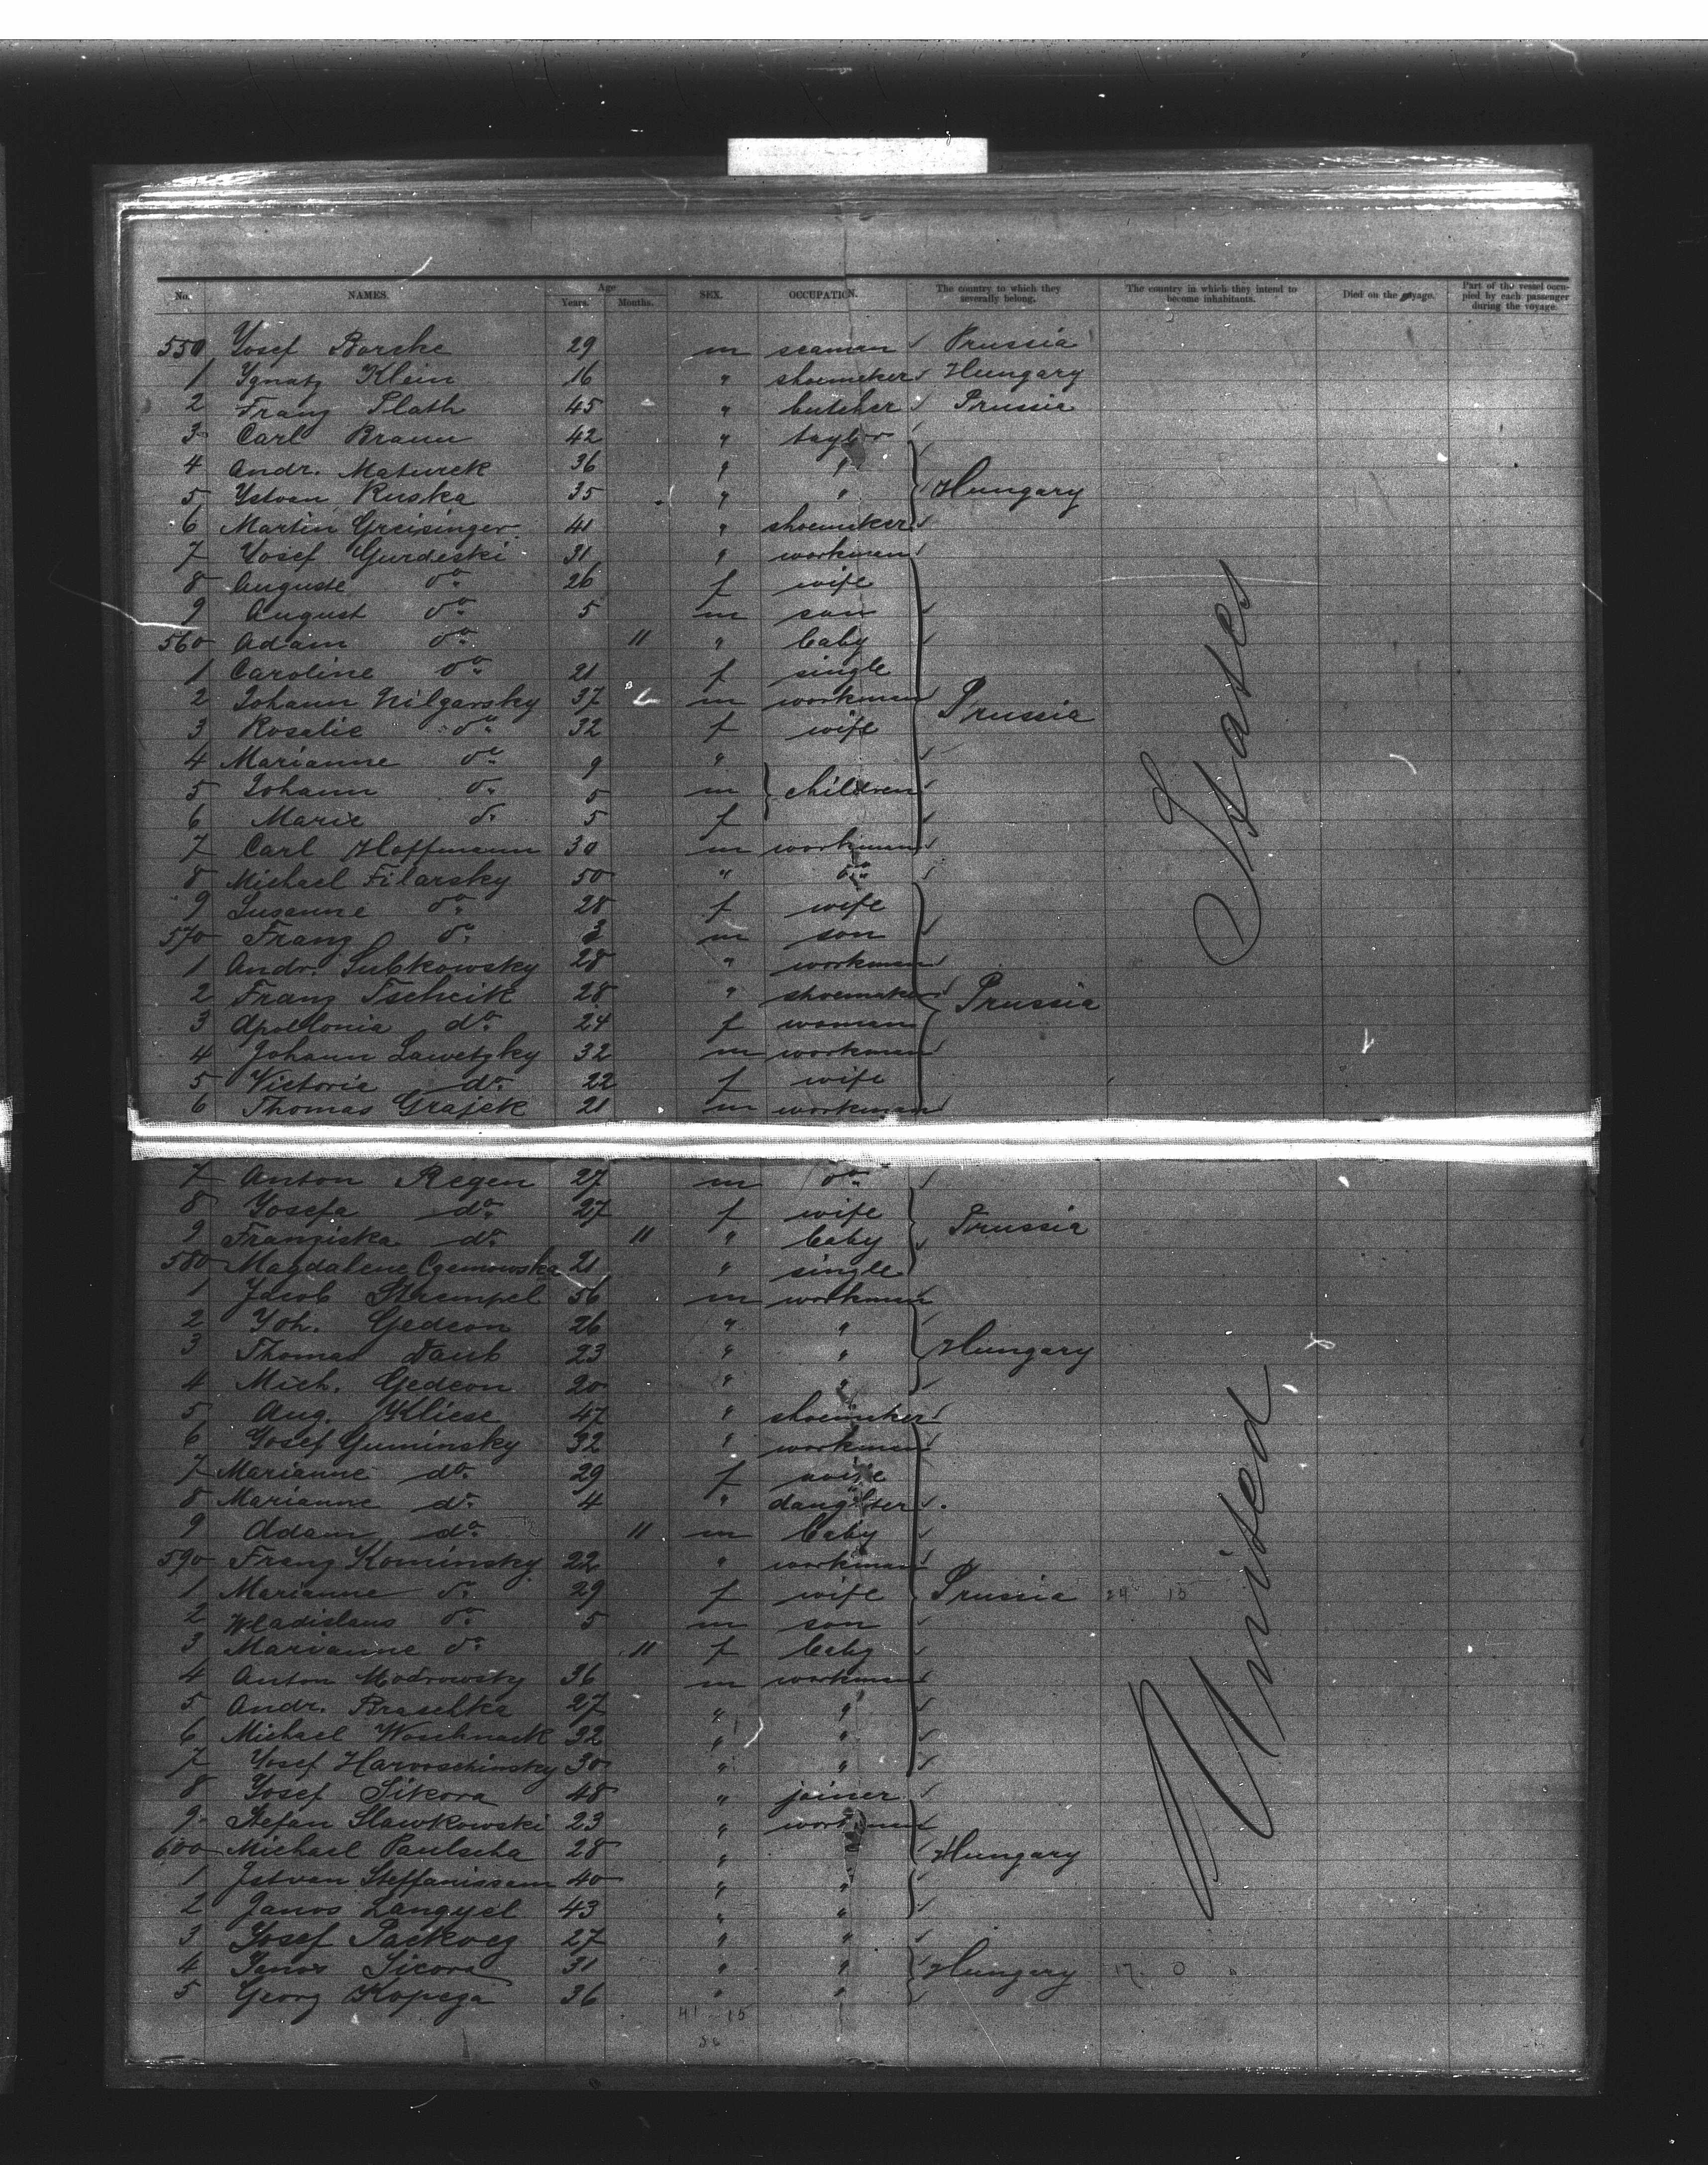 No. NAMES. Age Years. Months. SEX. OCCUPATION. The country to which they severally belong. The country in which they intend to become inhabitants. Died on the voyage. Part of the vessel occupied by each passenger during the voyage.
550 Yosef Borske 29 m seaman Prussia
1 Ygnatz Klein 16 " shoemaker Hungary
2 Franz Plath 45 " butcher Prussia
3 Carl Braun 42 " taylor
4 Andr. Maturek 36 " "
5 Ystvan Ruska 35 " " Hungary
6 Martin Greisinger 41 " shoemaker
7 Yosef Gurdeski 31 " workman
8 Auguste do 26 f wife
9 August do 5 m son
560 Adam do 11 " baby
1 Caroline do 21 f single
2 Johann Nilgarsky 37 m workman Prussia
3 Rosalie do 32 f wife
4 Marianne do 9 "
5 Johann do 5 m children
6 Marie do 5 f
7 Carl Hoffmann 30 m workman
8 Michael Filarsky 50 " do
9 Susanne do 28 f wife
570 Franz do 3 m son
1 Andr. Subkowsky 28 " workman
2 Franz Tscheik 28 " shoemaker Prussia
3 Apollonia do 24 f woman
4 Johann Lawetzky 32 m workman
5 Victoria do 22 f wife
6 Thomas Grajek 21 m workman
7 Anton Regen 27 m do
8 Yosefa do 27 f wife Prussia
9 Franziska do 11 " baby
580 Magdalene Czemowska 21 " single
1 Jacob Strempel 56 m workman
2 Yoh. Gedeon 26 " "
3 Thomas Daub 23 " " Hungary
4 Mich. Gedeon 20 " "
5 Aug. Kliese 47 " shoemaker
6 Yosef Guminsky 32 " workman
7 Marianne do 29 f wife
8 Marianne do 4 " daughter
9 Adam do 11 m baby
590 Franz Kominsky 22 " workman
1 Marianne do 29 f wife Prussia 24 15
2 Wladislaus do 5 m son
3 Marianne do 11 f baby
4 Anton Modrowsky 36 m workman
5 Andr. Braschka 27 " "
6 Michael Woschnack 32 " "
7 Yosef Harvoschinsky 30 " "
8 Yosef Sikora 48 " joiner
9 Stefan Slawkowski 23 " workman
600 Michael Paulscha 28 " Hungary
1 Jstvan Steffanissem 40 " "
2 Janos Langyel 43 " "
3 Yosef Paikoez 27 " "
4 Janos Sicora 31 " " Hungary 17 0
5 Georg Kopega 36 " "
41 - 15
United States